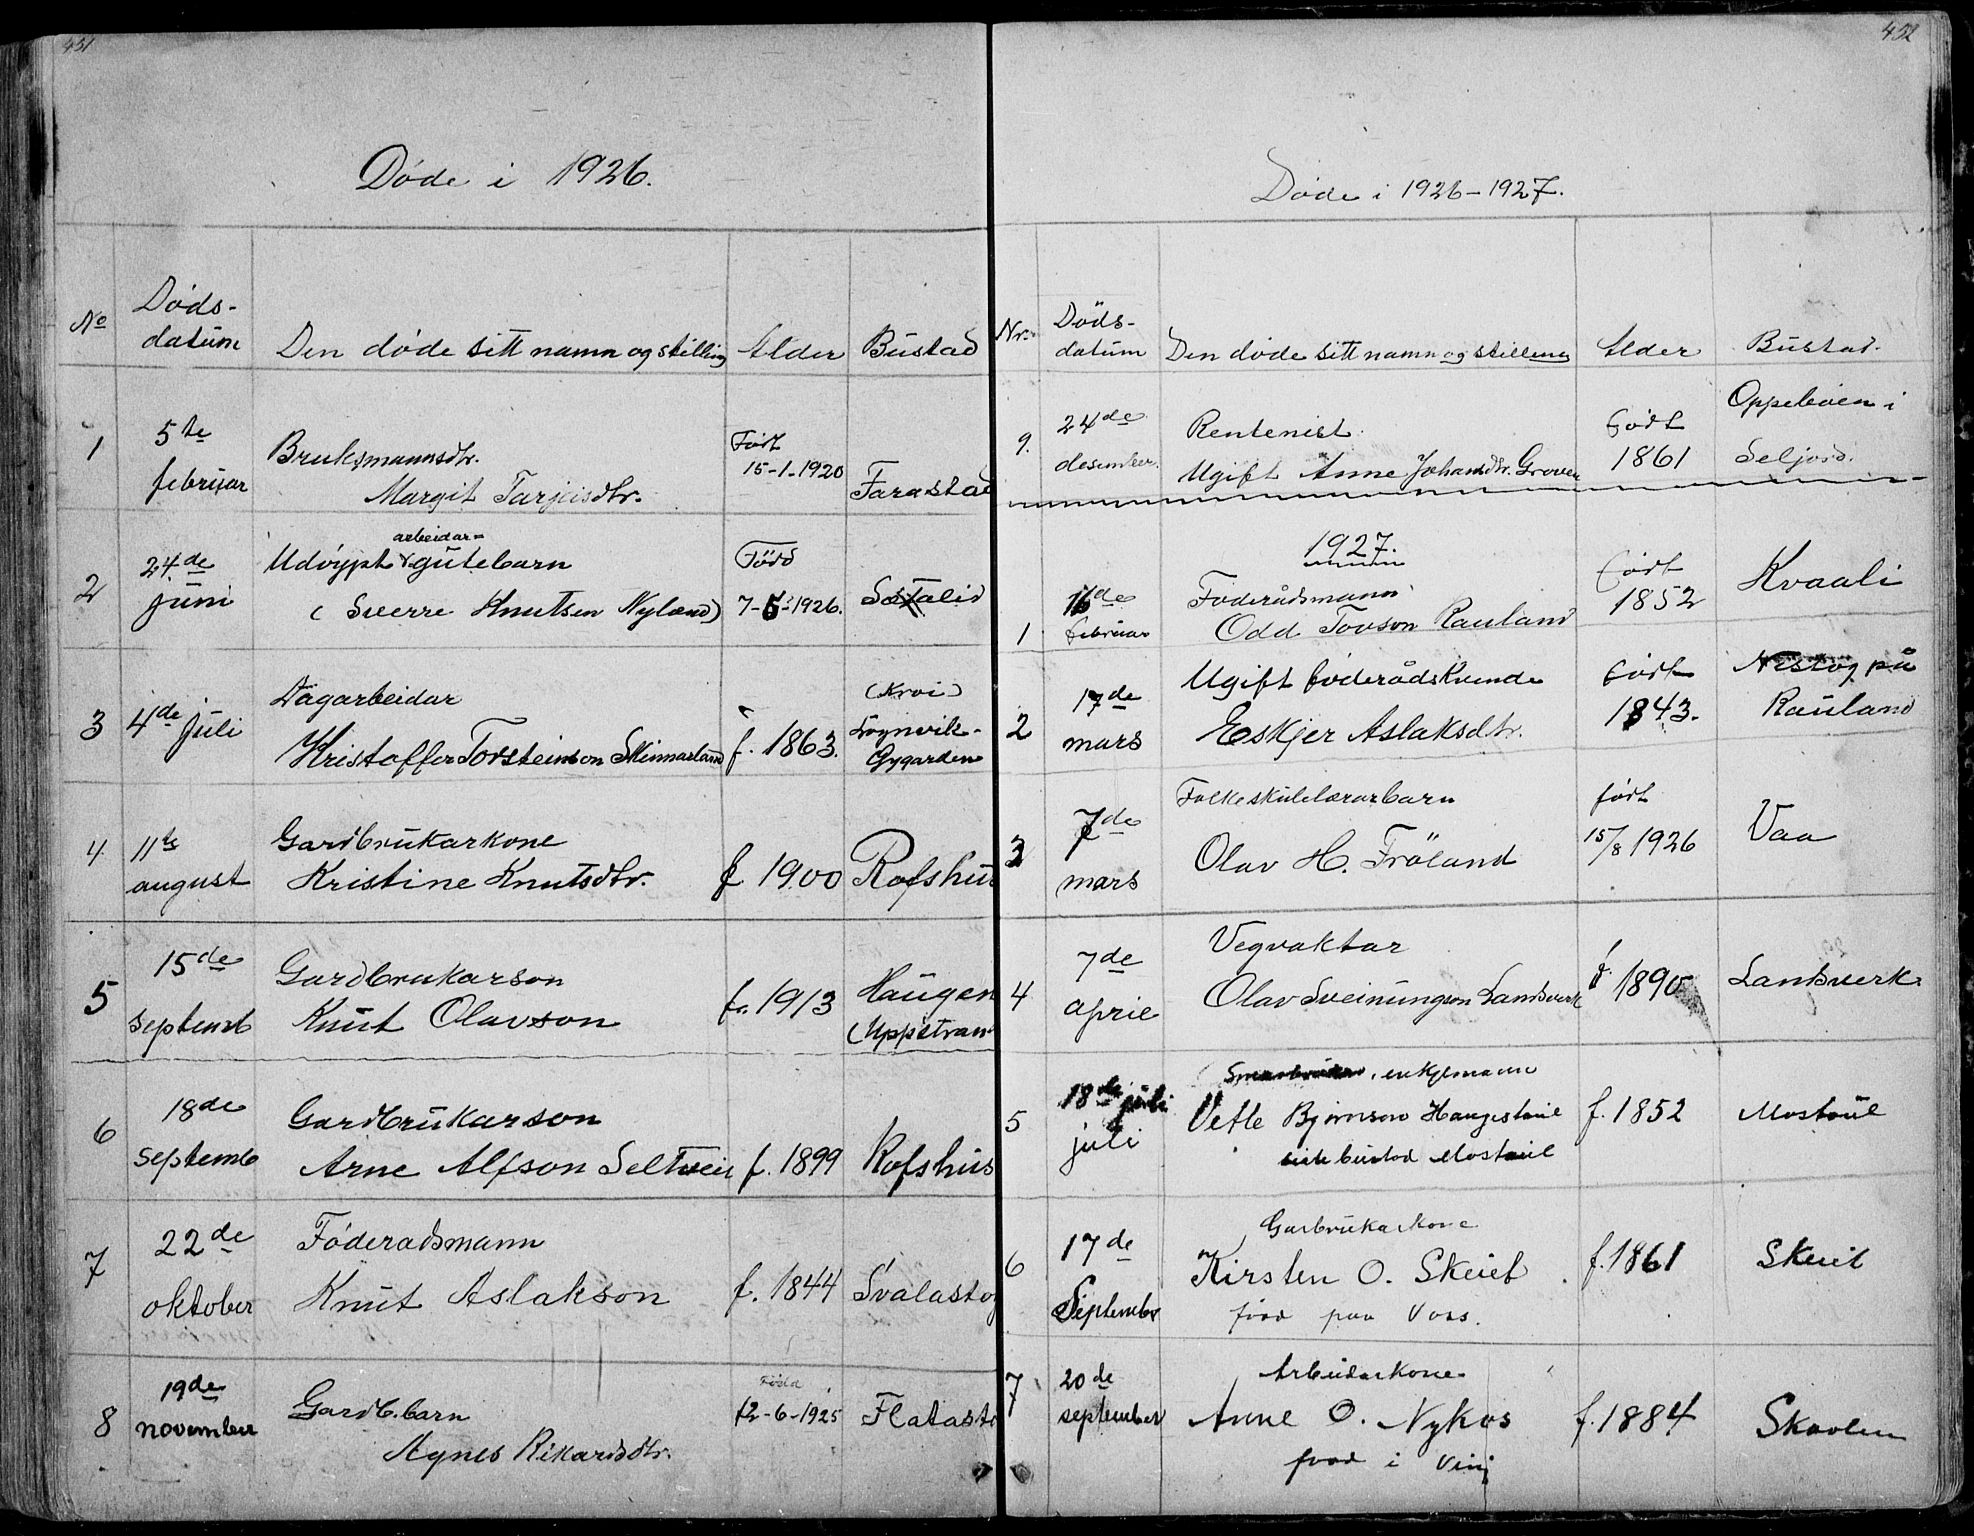 451
Døde i 1926.
No
Døds-
datum
Den døde sitt namn og stilling
Alder
Bustad
1
5te
februar
Bruksmannsdtr.
Margit Tarjeisdtr.
Født
15-1-1920
Farastad
2
24de
juni
arbeidar=
Udøypt gutebarn
(Sverre Knutsen Nyland)
Född
7-5-1926.
3
4de juli
Dagarbeidar
Kristoffer Torsteinson Skinnarland
f. 1863.
(Kroi)
Gygarden
4
11te
august
Gardbrukarkone
Kristine Knutsdtr.
f 1900
Rofshus
5
15de
septemb
Gardbrukarson
Knut Olavson
f. 1913
Haugen
(Uppstran
6
18de
septemb
Gardbrukarson
Arne Alfson Seltveit
f. 1899
Rofshus
7
22de
oktober
Føderadsmann
Knut Aslakson
f. 1844
Svalastog
8
19de
november
Gardb. barn
Agnes Rikardsdtr.
Född
12-6-1925
Flatasto
452
Døde i 1926-1927.
Nr.
Døds-
datum
Den døde sitt namn og stilling
Alder
Bustad.
9.
24de
desember.
Rentenist.
Ugift Anne Johansdtr. Groven
født
1861
i
Seljord.
1927.
1
16de
februar
Føderådsmann
Odd Tovson Rauland
født
1852
Kvaali
2
17de
mars
Ugift føderådskvende
Eskjer Aslaksdtr.
født
1843.
Nistog på
Rauland
3
7de
mars
Folkeskulelærarbarn
Olav H. Fröland
født
15/8 1926
Vaa
4
7de
april
Vegvaktar
Olav Sveinungson Landsverk
f. 1890
Landsverk
5
18de juli
juli
enkjemann
Vetle Bjørnson Haugestaul
siste bustad Mostaul
f. 1852
Mostaul
6
17de
September
Garbrukarkone
Kirsten O. Skeiet
fød paa Voss.
f. 1861
Skeiet
7
20de
september
Arbeidarkone
Anne O. Nykos
fød i Vinj
f. 1884
Skavlen